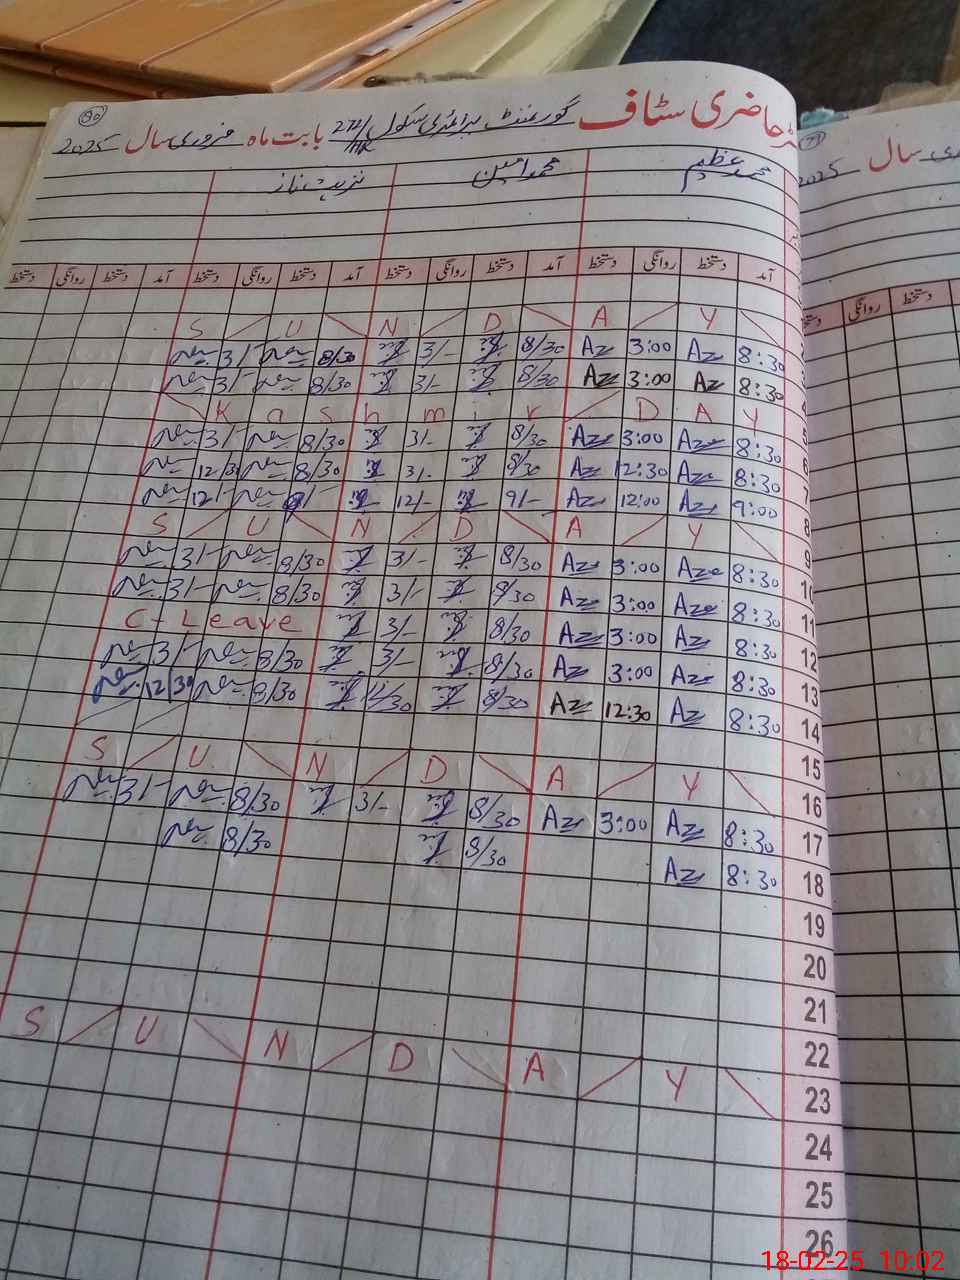 ٹر حاضری سٹاف گورنمنٹ پرائمری سکول 272/ بابت ماہ فروری سال 2025
90
محمد عظیم محمد امین نزہت ناز
آمد دستخط روانگی دستخط آمد دستخط روانگی دستخط آمد دستخط روانگی دستخط آمد دستخط روانگی دستخط
S U N D A Y
8:30 Az 3:00 Az 8/30 3/- 8/30 3/-
8:30 Az 3:00 Az 8/30 3/- 8/30 3/-
Kashmir DAY
5
6 8:30 Az 3:00 Az 8/30 3/- 8/30 3/-
7 8:30 Az 12:30 Az 8/30 3/- 8/30 12/30
8 9:00 Az 12:00 Az 9/- 12/- 9/- 12/-
9 S U N D A Y
10 8:30 Az 3:00 Az 8/30 3/- 8/30 3/-
11 8:30 Az 3:00 Az 8/30 3/- 8/30 3/-
12 8:30 Az 3:00 Az 8/30 3/- C-Leave
13 8:30 Az 3:00 Az 8/30 3/- 8/30 3/-
14 8:30 Az 12:30 Az 8/30 8/30 12/30
15
16 S U N D A Y
17 8:30 Az 3:00 Az 8/30 3/- 8/30 3/-
18 8:30 Az 8/30 8/30
19
20
21
22
23 S U N D A Y
24
25
26
سال 2025
دستخط روانگی دستخط
18-02-25 10:02